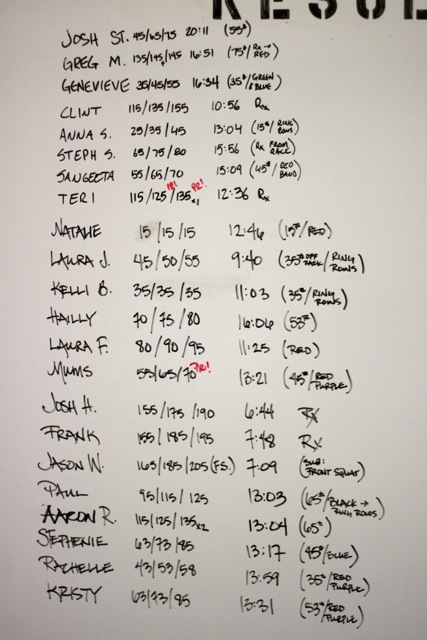 RESUL
JOSH ST. 45/65/75 20:11 (55#)
GREG M. 135/145/145 16:51 (75#/RX → RED)
GENEVIEVE 35/45/55 16:34 (35#/GREEN & BLUE)
CLINT 115/135/155 10:56 RX
ANNA S. 25/35/45 13:04 (15#/RING ROWS)
STEPH S. 65/75/80 15:56 (RX FROM RACK)
SANGEETA 55/65/70 15:09 (45#/RED BAND)
TERI 115/125 PR!/135x1 PR! 12:36 RX
NATALIE 15/15/15 12:46 (15#/RED)
LAURA J. 45/50/55 9:40 (35# OFF RACK/RING ROWS)
KELLI B. 35/35/35 11:03 (35#/RING ROWS)
HAILLY 70/75/80 16:06 (53#)
LAURA F. 80/90/95 11:25 (RED)
MUMS 55/65/70 PR! 13:21 (45#/RED PURPLE)
JOSH H. 155/175/190 6:44 RX
FRANK 155/185/195 7:48 RX
JASON W. 165/185/205 (F.S.) 7:09 (SUB: FRONT SQUAT)
PAUL 95/115/125 13:03 (65#/BLACK → RING ROWS)
AARON R. 115/125/135x2 13:04 (65#)
STEPHENIE 63/73/85 13:17 (45#/BLUE)
RACHELLE 43/53/58 13:59 (35#/RED PURPLE)
KRISTY 63/73/85 13:31 (53#/RED PURPLE)